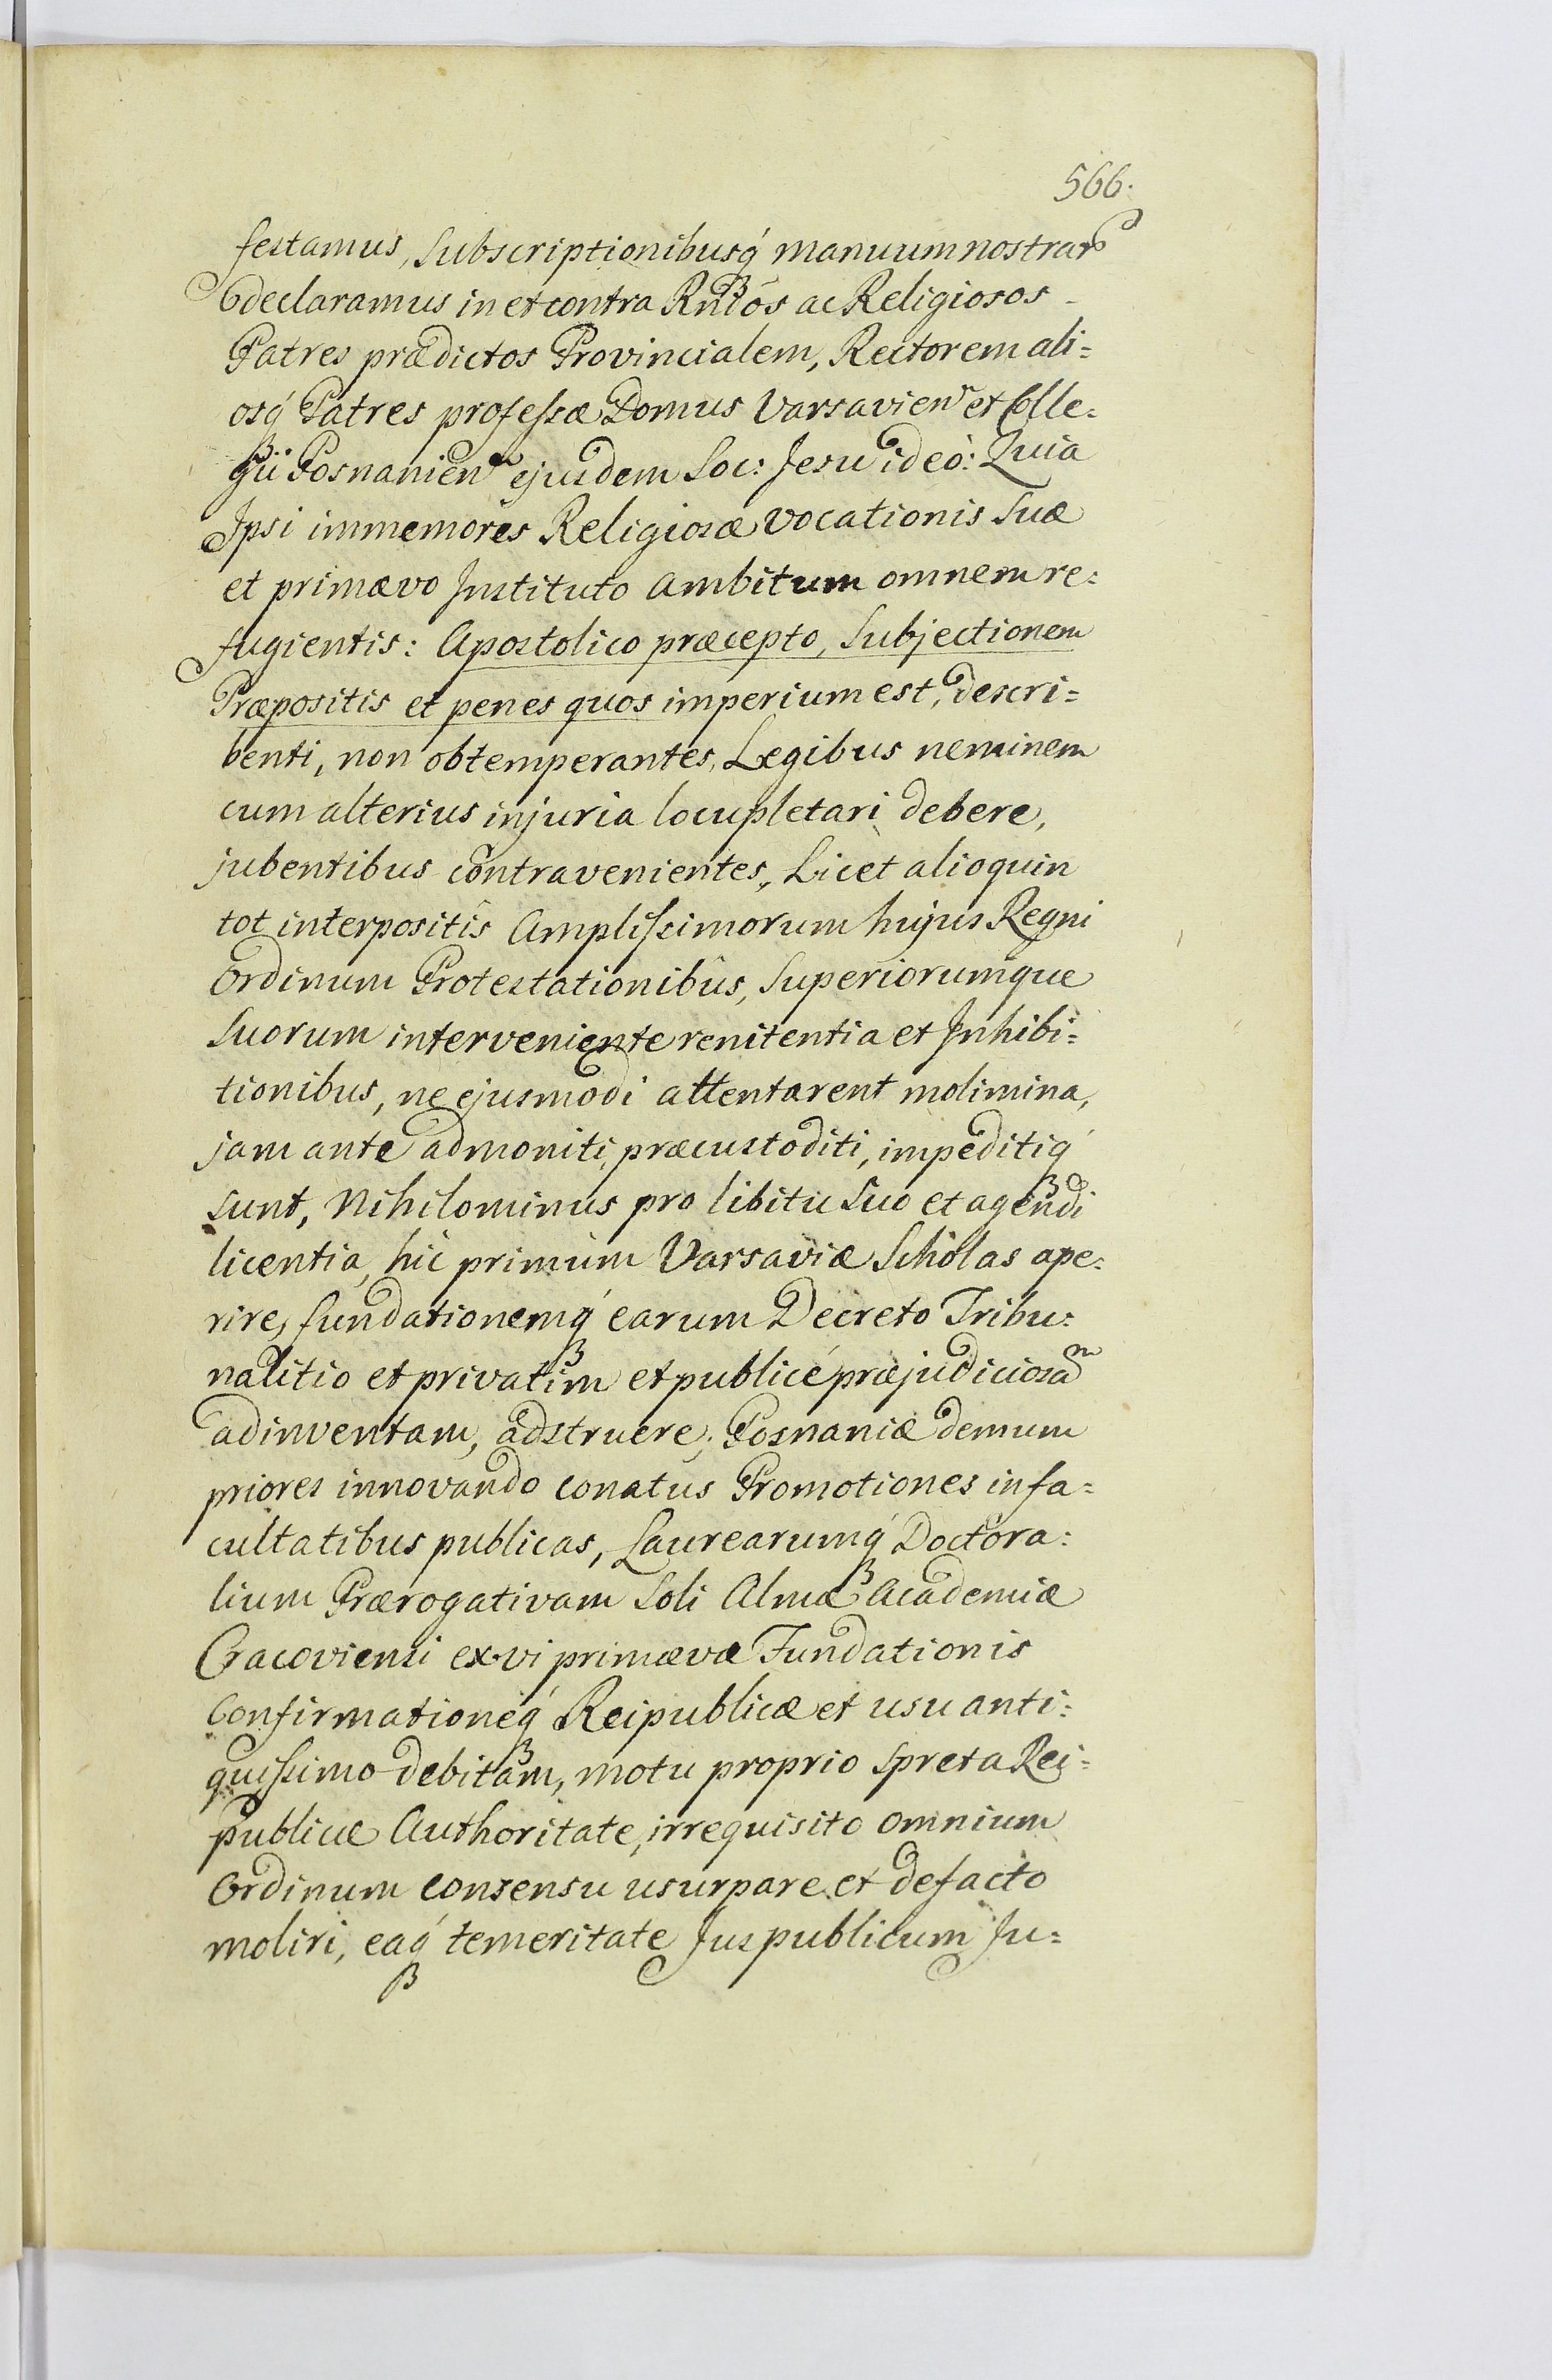 566.
festamus, Subscriptionibusq́ manuum nostrar
declaramus in et contra Rndós ac Religiosos
Patres prædictos Provincialem, Rectorem ali=
osq́ Patres professæ Domus Varsavien et Colle=
gii Posnanien ejusdem Soc: Jesu ideò: Quia
Ipsi immemores Religiosæ vocationis Suæ
et primævo Instituto ambitum omnem re=
fugientis: Apostolico præcepto, Subjectionem
Præpositis et penes quos imperium est, descri=
benti, non obtemperantes, Legibus neminem
cum alterius injuria locupletari debere,
jubentibus contravenientes, Licet alioquin
tot interpositîs Amplissimorum hujus Regni
Ordinum Protestationibûs, Superiorumque
Suorum interveniente renitentia et Inhibi=
tionibus, ne ejusmodi attentarent molimina,
jam ante admoniti, præcustoditi, impeditiq́
sunt, Nihilominus pro libitu Suo et agendi
licentia, hîc primùm Varsaviæ Scholas ape=
rire, fundationemq́ earum Decreto Tribu=
nalitio et privatim et publicè præjudiciosam
adinventam, adstruere; Posnaniæ demum
priores innovando conatus Promotiones in fa=
cultatibus publicas, Laurearumq́ Doctora=
lium Prærogativam Soli Almæ Academiæ
Cracoviensi ex vi primævæ Fundationis
Confirmationeq́ Reipublicæ et usu anti=
quissimo debitam, motu proprio spreta Rei=
publicæ Authoritate, irrequisito omnium
Ordinum consensu usurpare et de facto
moliri, eaq́ temeritate Jus publicum Ju=